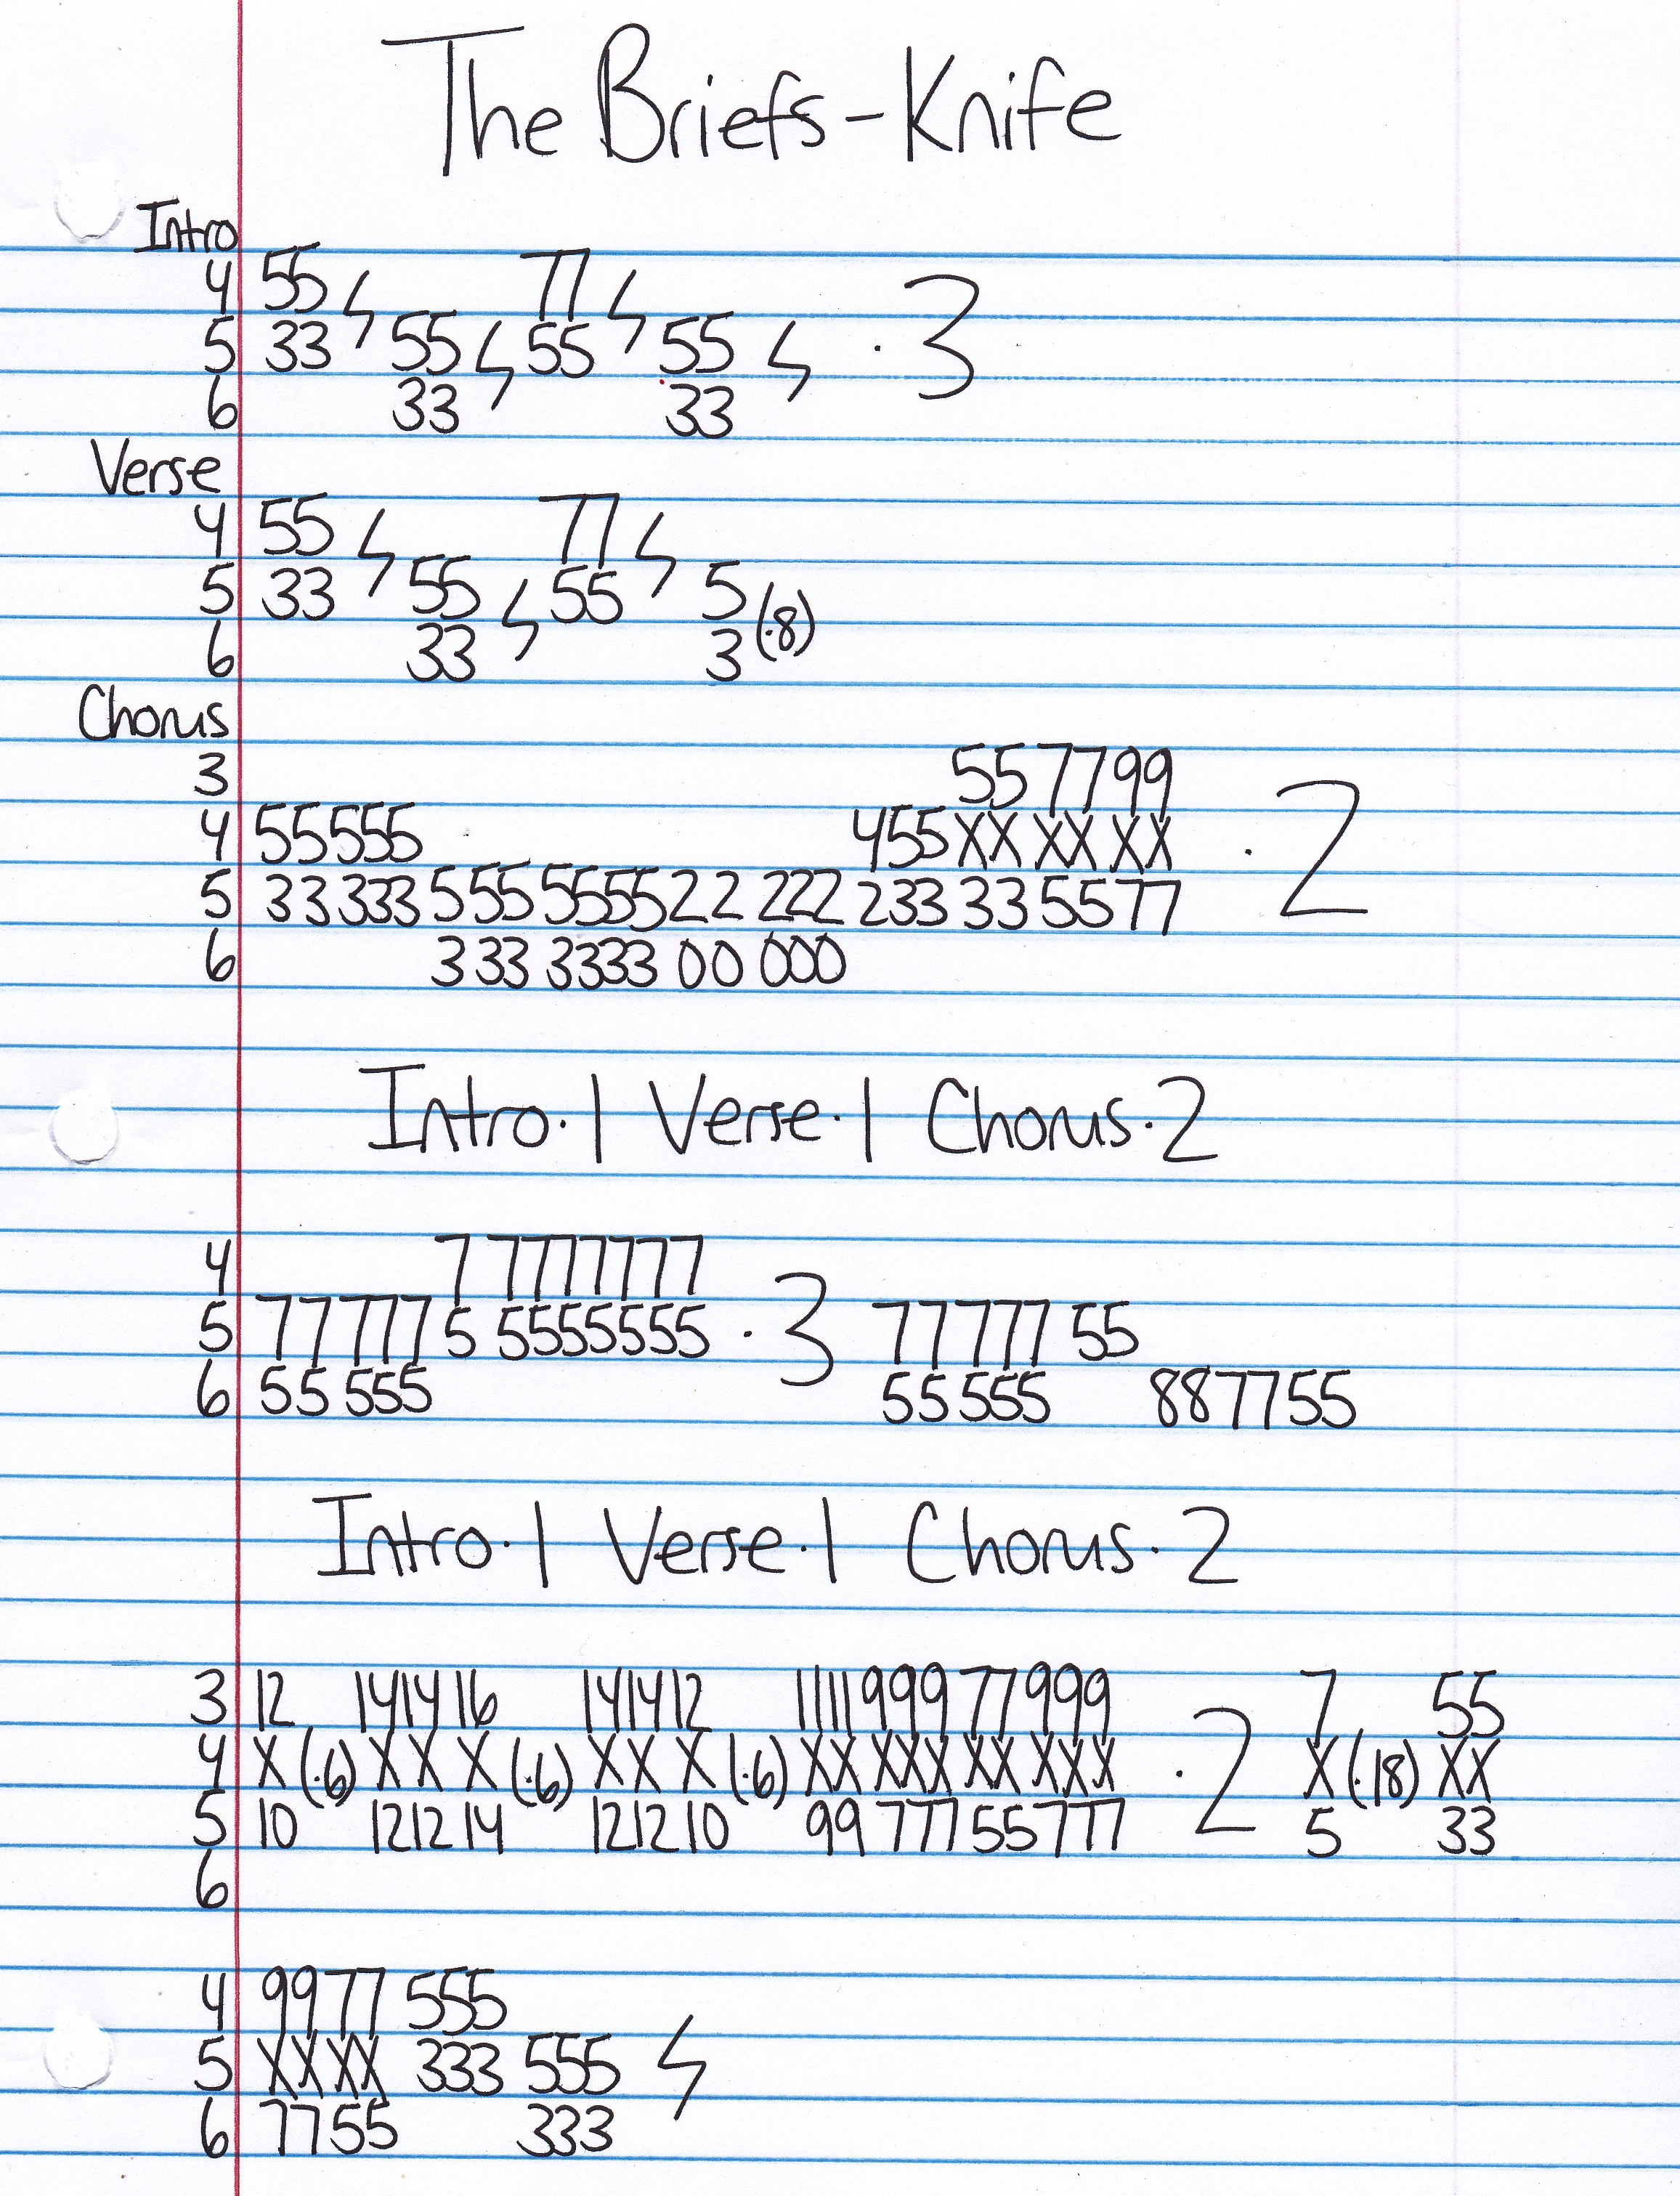 The Briefs-Knife
Intro
4 55 ϟ 77 ϟ
5 33 55 ϟ 55 55 ϟ · 3
6 33 33
Verse
4 55 ϟ 77 ϟ
5 33 55 ϟ 55 5 (·8)
6 33 3
Chorus
3 55 77 99
4 55555 455 XX XX XX · 2
5 33 333 5 55 5555 22 222 233 33 55 77
6 3 33 3333 00 000
Intro·1 Verse·1 Chorus·2
4 7 7777777
5 77 777 5 5555555 · 3 77 777 55
6 55 555 55 555 887755
Intro·1 Verse·1 Chorus·2
3 12 1414 16 141412 1111 999 77 999 7 55
4 X (·6) X X X (·6) XX X (·6) XX XXX XX XXX · 2 X (·18) XX
5 10 1212 14 1212 10 99 777 55 777 5 33
6
4 9977 555
5 XXXX 333 555 ϟ
6 7755 333